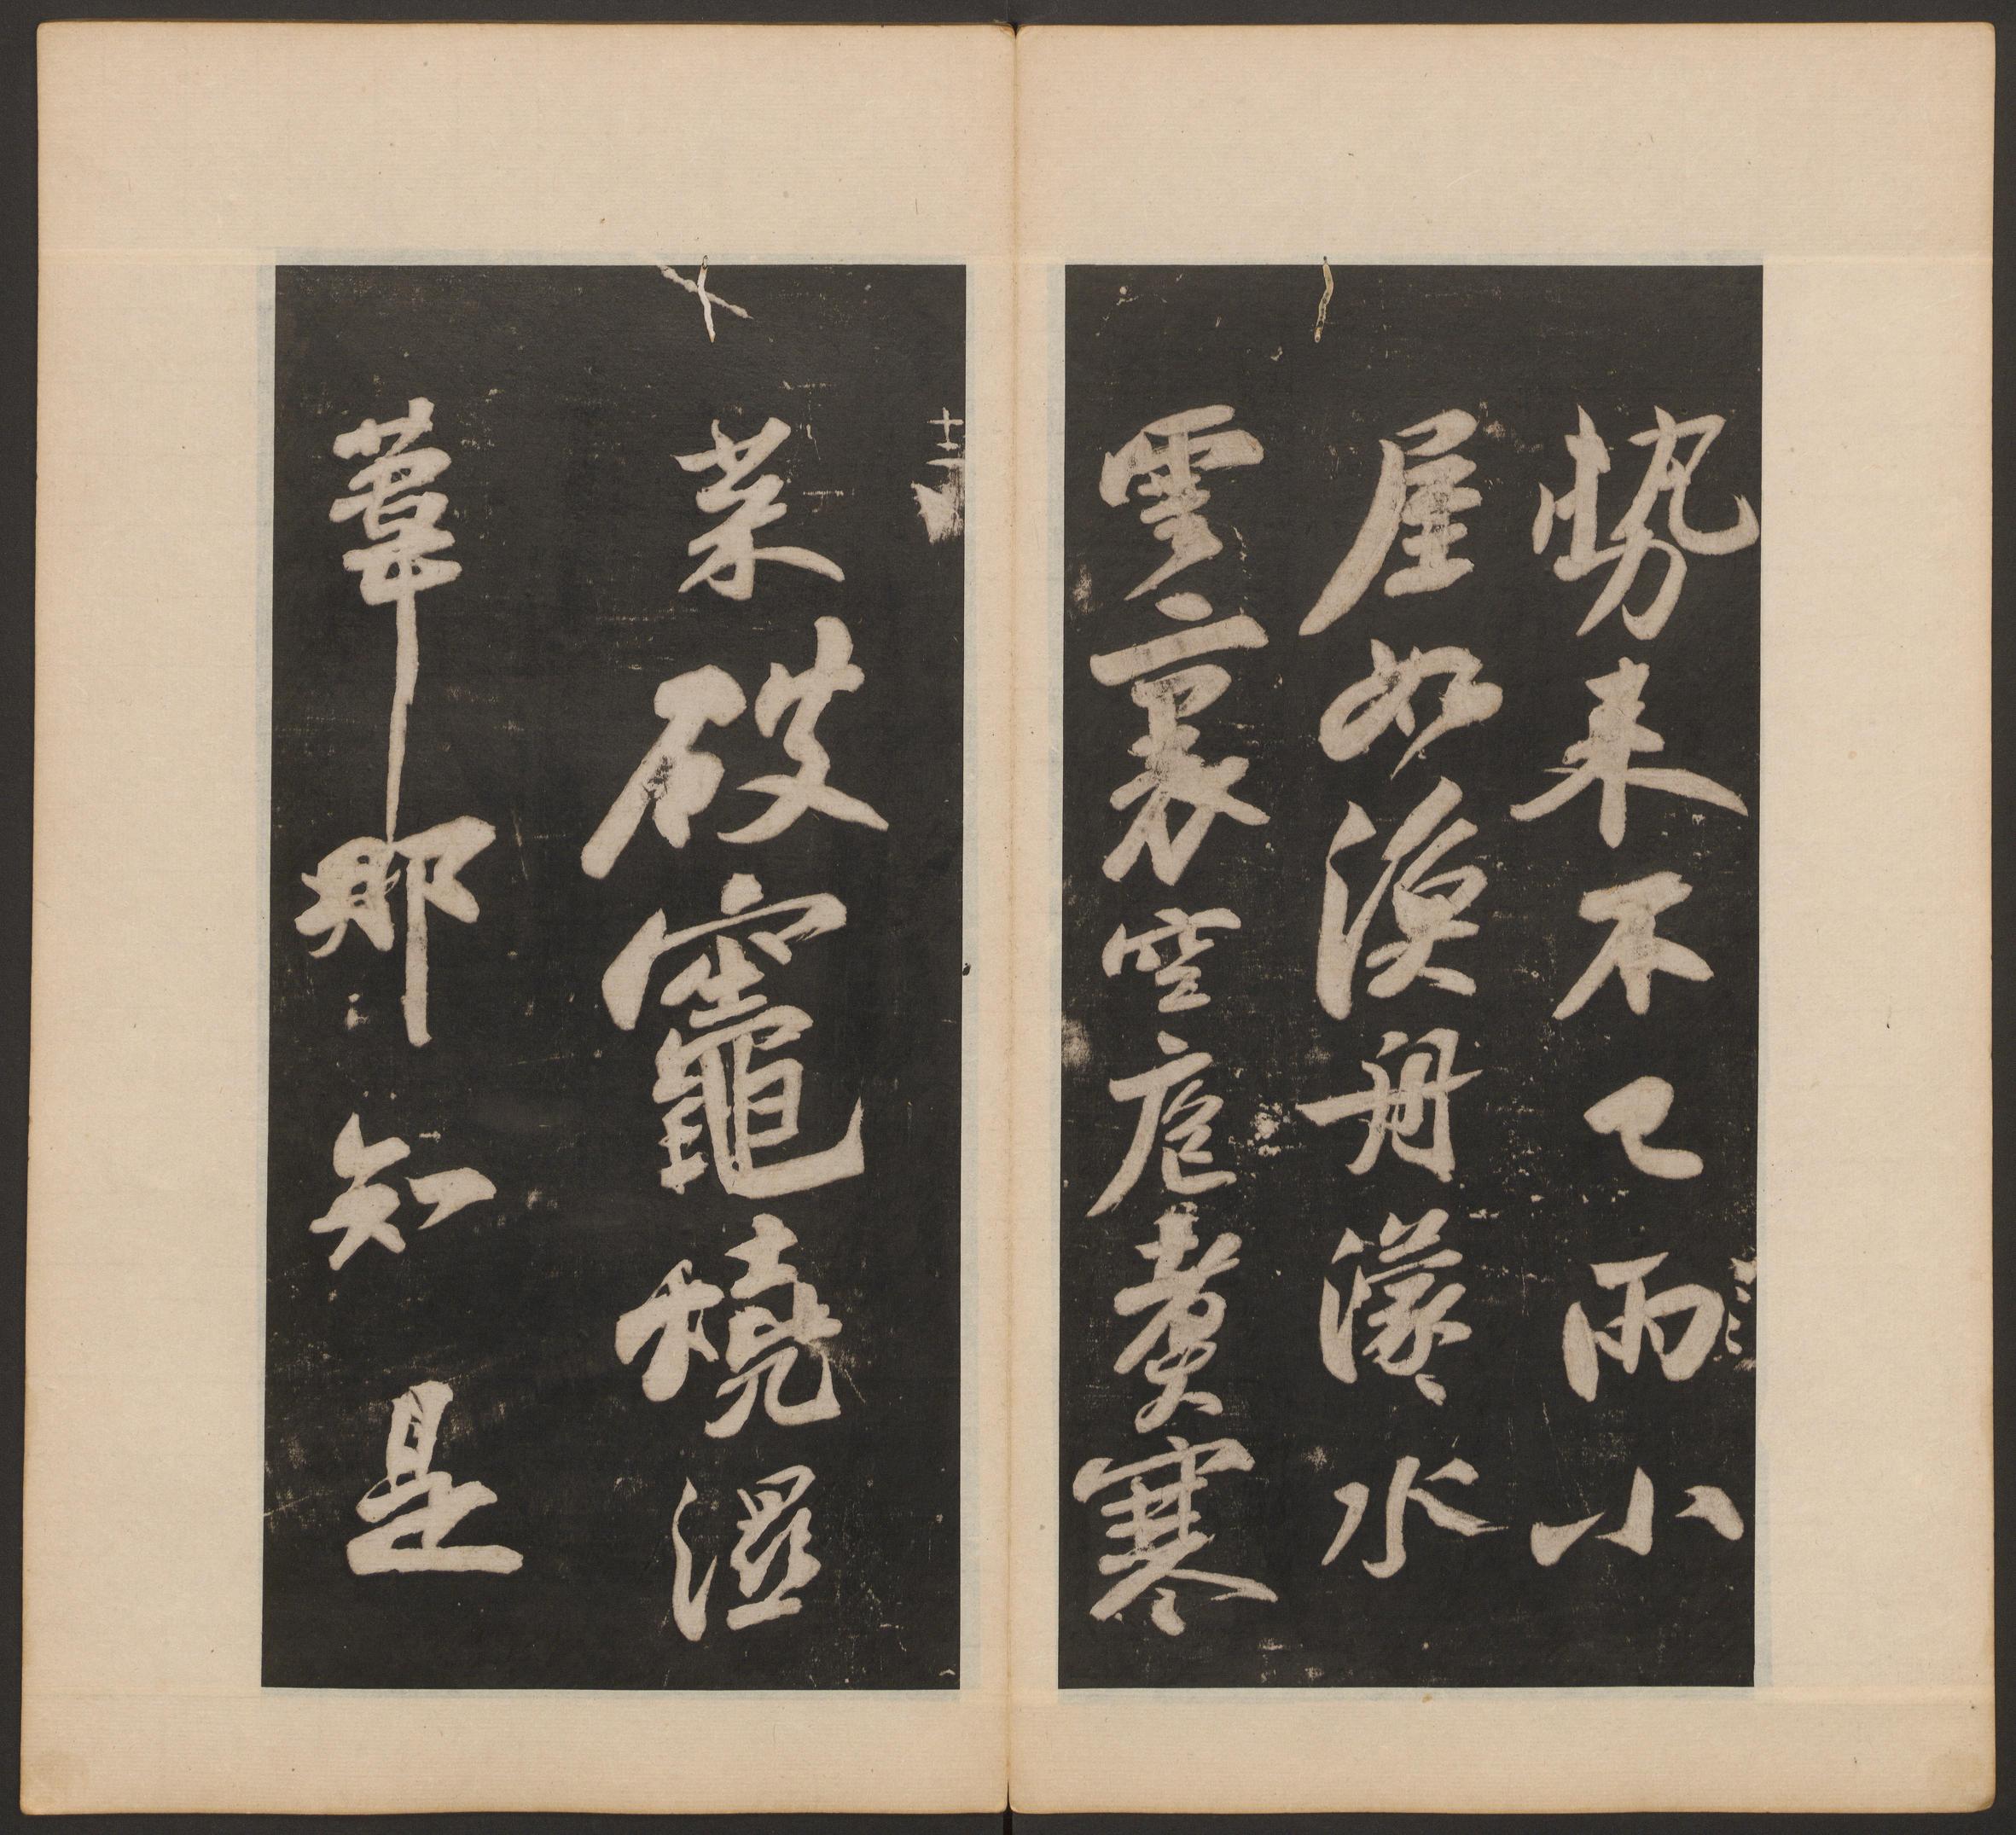 勢来不已雨小
屋如漁舟濛〻水
雲裏空庖煮寒
菜破竈燒濕
葦那知是